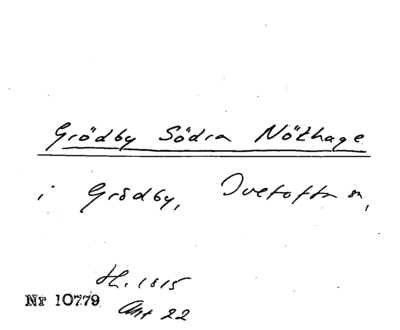 Grödby Södra Nöthage
i Grödby, Ivetofta sn,
H. 1815
Nr 10779
Akt 22